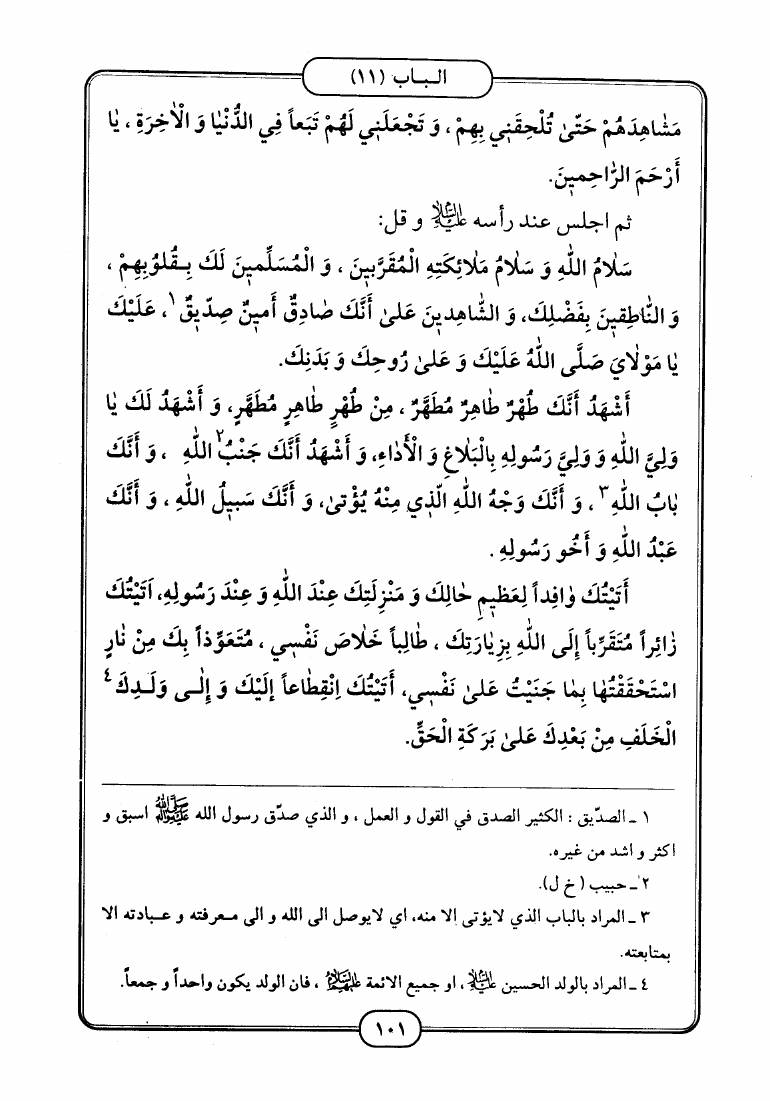 الـبـاب (١١)
مَشٰاهِدَهُمْ حَتّىٰ تُلْحِقَنِي بِهِمْ ، وَ تَجْعَلَنِي لَهُمْ تَبَعاً فِي الدُّنْيٰا وَ الْاٰخِرَةِ ، يٰا
أَرْحَمَ الرّٰاحِمينَ.
ثم اجلس عند رأسه عليه السلام و قل:
سَلٰامُ اللّٰهِ وَ سَلٰامُ مَلٰائِكَتِهِ الْمُقَرَّبينَ ، وَ الْمُسَلِّمينَ لَكَ بِـقُلُوبِهِمْ ،
وَ النّٰاطِقينَ بِفَضْلِكَ، وَ الشّٰاهِدينَ عَلىٰ أَنَّكَ صٰادِقٌ أَمينٌ صِدّيقٌ ١، عَلَيْكَ
يٰا مَوْلٰايَ صَلَّى اللّٰهُ عَلَيْكَ وَ عَلىٰ رُوحِكَ وَ بَدَنِكَ.
أَشْهَدُ أَنَّكَ طُهْرٌ طٰاهِرٌ مُطَهَّرٌ ، مِنْ طُهْرٍ طٰاهِرٍ مُطَهَّرٍ، وَ أَشْهَدُ لَكَ يٰا
وَلِيَّ اللّٰهِ وَ وَلِيَّ رَسُولِهِ بِالْبَلٰاغِ وَ الْأَدٰاءِ، وَ أَشْهَدُ أَنَّكَ جَنْبُ ٢ اللّٰهِ ، وَ أَنَّكَ
بٰابُ اللّٰهِ ٣ ، وَ أَنَّكَ وَجْهُ اللّٰهِ الَّذِي مِنْهُ يُؤْتىٰ، وَ أَنَّكَ سَبيلُ اللّٰهِ ، وَ أَنَّكَ
عَبْدُ اللّٰهِ وَ أَخُو رَسُولِهِ .
أَتَيْتُكَ وٰافِداً لِعَظيمِ حٰالِكَ وَ مَنْزِلَتِكَ عِنْدَ اللّٰهِ وَ عِنْدَ رَسُولِهِ، اَتَيْتُكَ
زٰائِراً مُتَقَرِّباً إِلَى اللّٰهِ بِزِيٰارَتِكَ ، طٰالِباً خَلٰاصَ نَفْسِي ، مُتَعَوِّذاً بِكَ مِنْ نٰارٍ
اسْتَحْقَقْتُهٰا بِمٰا جَنَيْتُ عَلىٰ نَفْسِي، أَتَيْتُكَ اِنْقِطٰاعاً إِلَيْكَ وَ إِلٰـى وَلَـدِكَ ٤
الْخَلَفِ مِنْ بَعْدِكَ عَلىٰ بَرَكَةِ الْحَقِّ.
١ ـ الصدّيق : الكثير الصدق في القول و العمل ، و الذي صدّق رسول الله صلى الله عليه وآله اسبق و
اكثر و اشد من غيره.
٢ ـ حبيب (خ ل).
٣ ـ المراد بالباب الذي لايؤتى إلا منه، اي لايوصل الى الله و الى مـعرفته و عـبادته الا
بمتابعته.
٤ ـ المراد بالولد الحسين عليه السلام، او جميع الائمة عليهم السلام ، فان الولد يكون واحداً و جمعاً.
١٠١